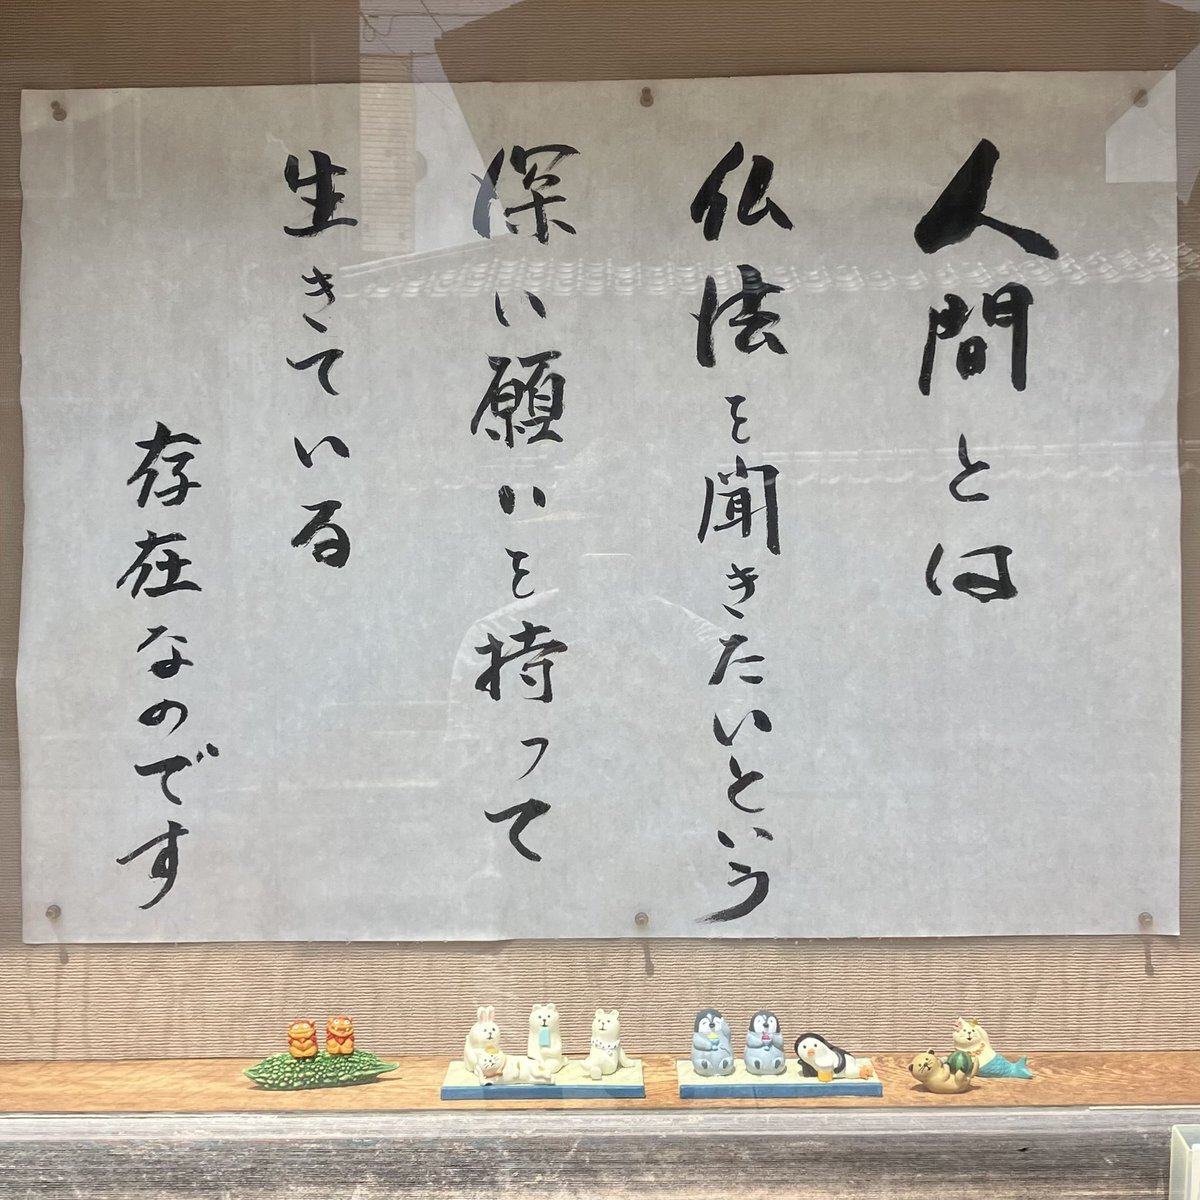 人間とは
仏法を聞きたいという
深い願いを持って
生きている
存在なのです